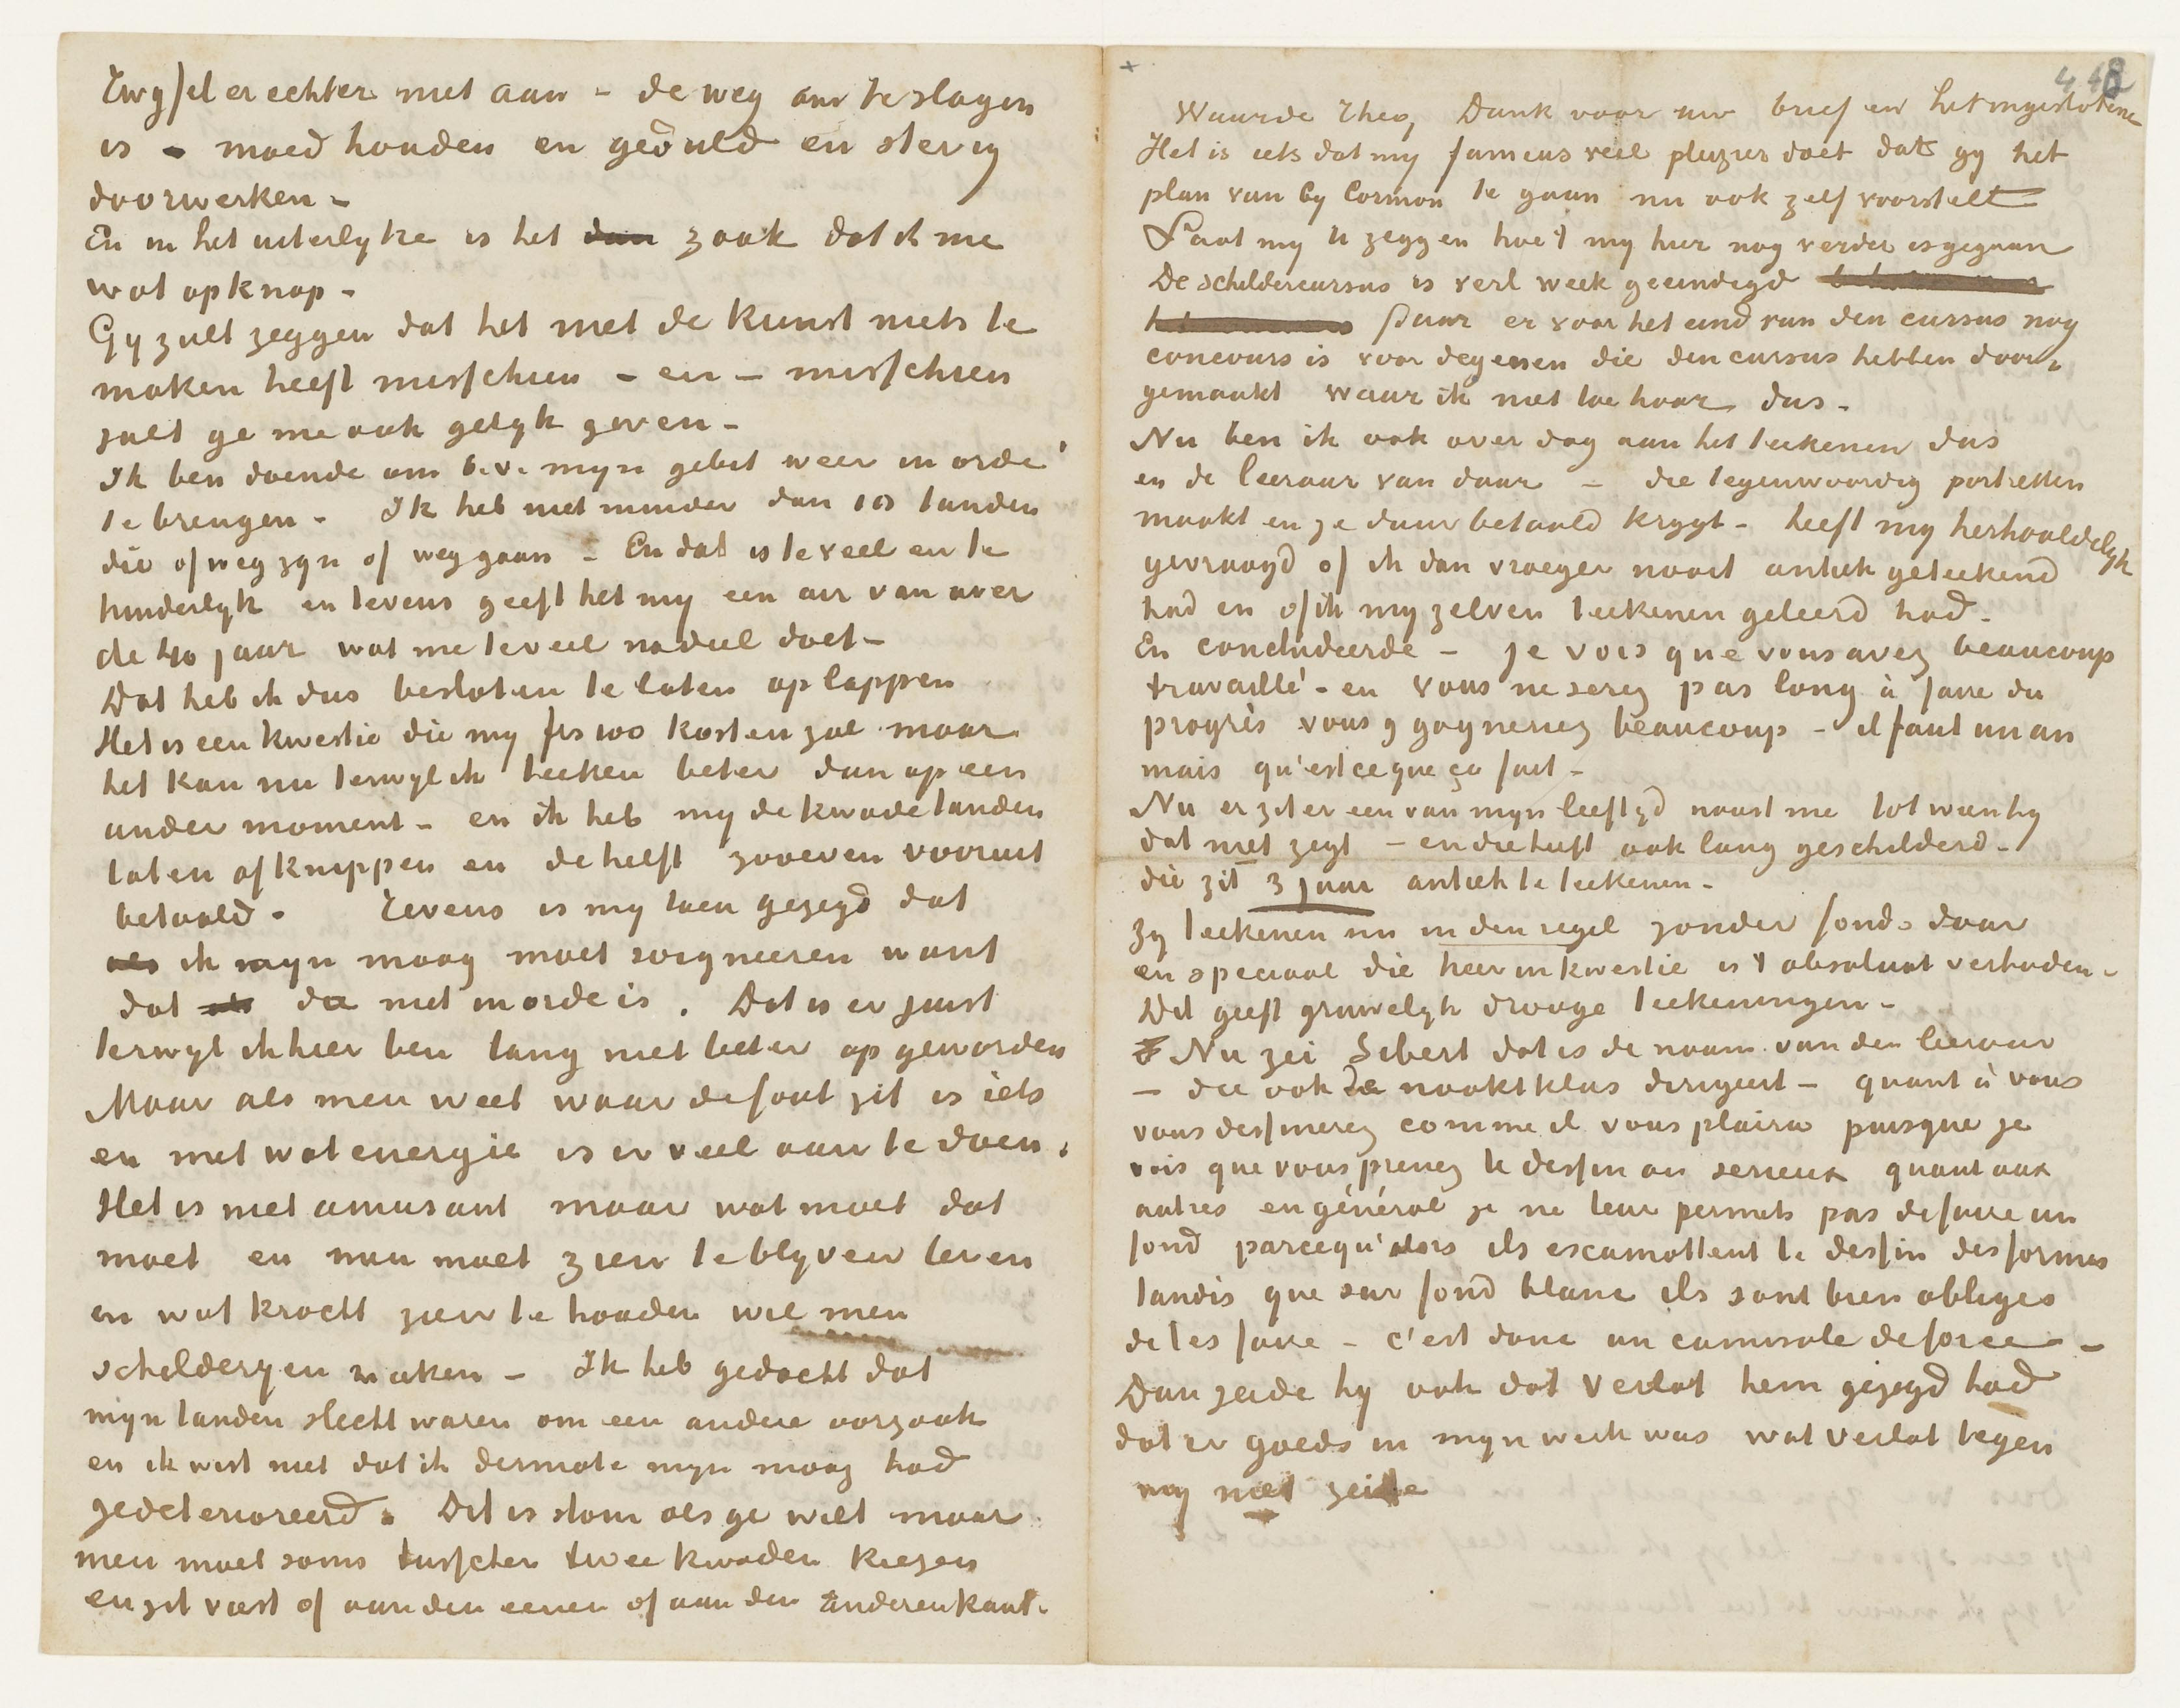 Twyfel er echter niet aan – de weg om te slagen
is – moed houden en geduld en stevig
doorwerken –
En in het uiterlyke is het dan zaak dat ik me
wat opknap –
Gy zult zeggen dat het met de kunst niets te
maken heeft misschien – en – misschien
zult ge me ook gelyk geven –
Ik ben doende om b.v. myn gebit weer in orde
te brengen – Ik heb niet minder dan 10 tanden
die of weg zyn of weg gaan – En dat is te veel en te
hinderlyk en tevens geeft het my een air van over
de 40 jaar wat me te veel nadeel doet –
Dat heb ik dus besloten te laten oplappen
Het is een kwestie die my frs 100 kosten zal maar
het kan nu terwyl ik teeken beter dan op een
ander moment – en ik heb my de kwade tanden
laten afknippen en de helft zooeven vooruit
betaald. Tevens is my toen gezegd dat
als ik myn maag moet soigneeren want
dat als die niet in orde is. Dat is er juist
terwyl ik hier ben lang niet beter op geworden
Maar als men weet waar de fout zit is iets
en met wat energie is er veel aan te doen.
Het is niet amusant maar wat moet dat
moet en men moet zien te blyven leven
en wat kracht zien te houden wil men
schilderyen maken – Ik heb gedacht dat
myn tanden slecht waren om een andere oorzaak
en ik wist niet dat ik dermate myn maag had
gedeterioreerd. Dit is stom als ge wilt maar
men moet soms tusschen twee kwaden kiezen
en zit vast of aan den eenen of aan den anderen kant.
+ 448
Waarde Theo, Dank voor uw brief en het ingeslotene
Het is iets dat my fameus veel pleizier doet dat gy het
plan van by Cormon te gaan nu ook zelf voorstelt
Laat my U zeggen hoe 't my hier nog verder is gegaan
De schildercursus is verl week geeindigd
daar er voor het eind van den cursus nog
concours is voor degenen die den cursus hebben door,
gemaakt waar ik niet toe hoor dus –
Nu ben ik ook over dag aan het teekenen dus
en de leeraar van daar – die tegenwoordig portretten
maakt en ze duur betaald krygt – heeft my herhaaldelyk
gevraagd of ik dan vroeger nooit antiek geteekend
had en of ik my zelven teekenen geleerd had –
En concludeerde – je vois que vous avez beaucoup
travaillé – en vous ne serez pas long à faire du
progrès vous y gagneriez beaucoup – il faut un an
mais qu'est ce que ça fait –
Nu er zit er een van myn leeftyd naast me tot wien hy
dat niet zegt – en die heeft ook lang geschilderd –
die zit 3 jaar antiek te teekenen –
Zy teekenen nu in den regel zonder fonds daar
en speciaal die heer in kwestie is 't absoluut verboden –
Dit geeft gruwelyk drooge teekeningen –
Nu zei Sibert dat is de naam van den leeraar
– die ook de naaktklas dirigeert – quant à vous
vous dessinerez comme il vous plaira puisque je
vois que vous prenez le dessin au serieux quant aux
autres en général je ne leur permets pas de faire un
fond parcequ'alors ils escamottent le dessin des formes
tandis que sur fond blanc ils sont bien obligés
de les faire – c'est donc un camisole de force –
Dan zeide hy ook dat Verlat hem gezegd had
dat er goeds in myn werk was wat Verlat tegen
my niet zeide